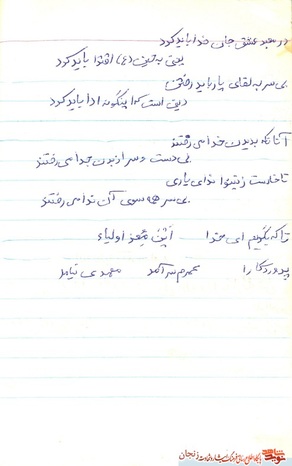 در معبد عشق جان فدا باید کرد
یعنی به حسین (ع) اقتدا باید کرد
بی سر به لقای یار باید رفتن
دین است که اینگونه ادا باید کرد
آنانکه بدیدن خدا می رفتند
بی دست و سر از بدن جدا می رفتند
تا خاست ز نینوا ندای یاری
بی سر همه سوی آن ندا می رفتند
تا که بگویم ای خدا
پروردگارا عمرم سر آمد مهدی نیامد
نوید شاهد